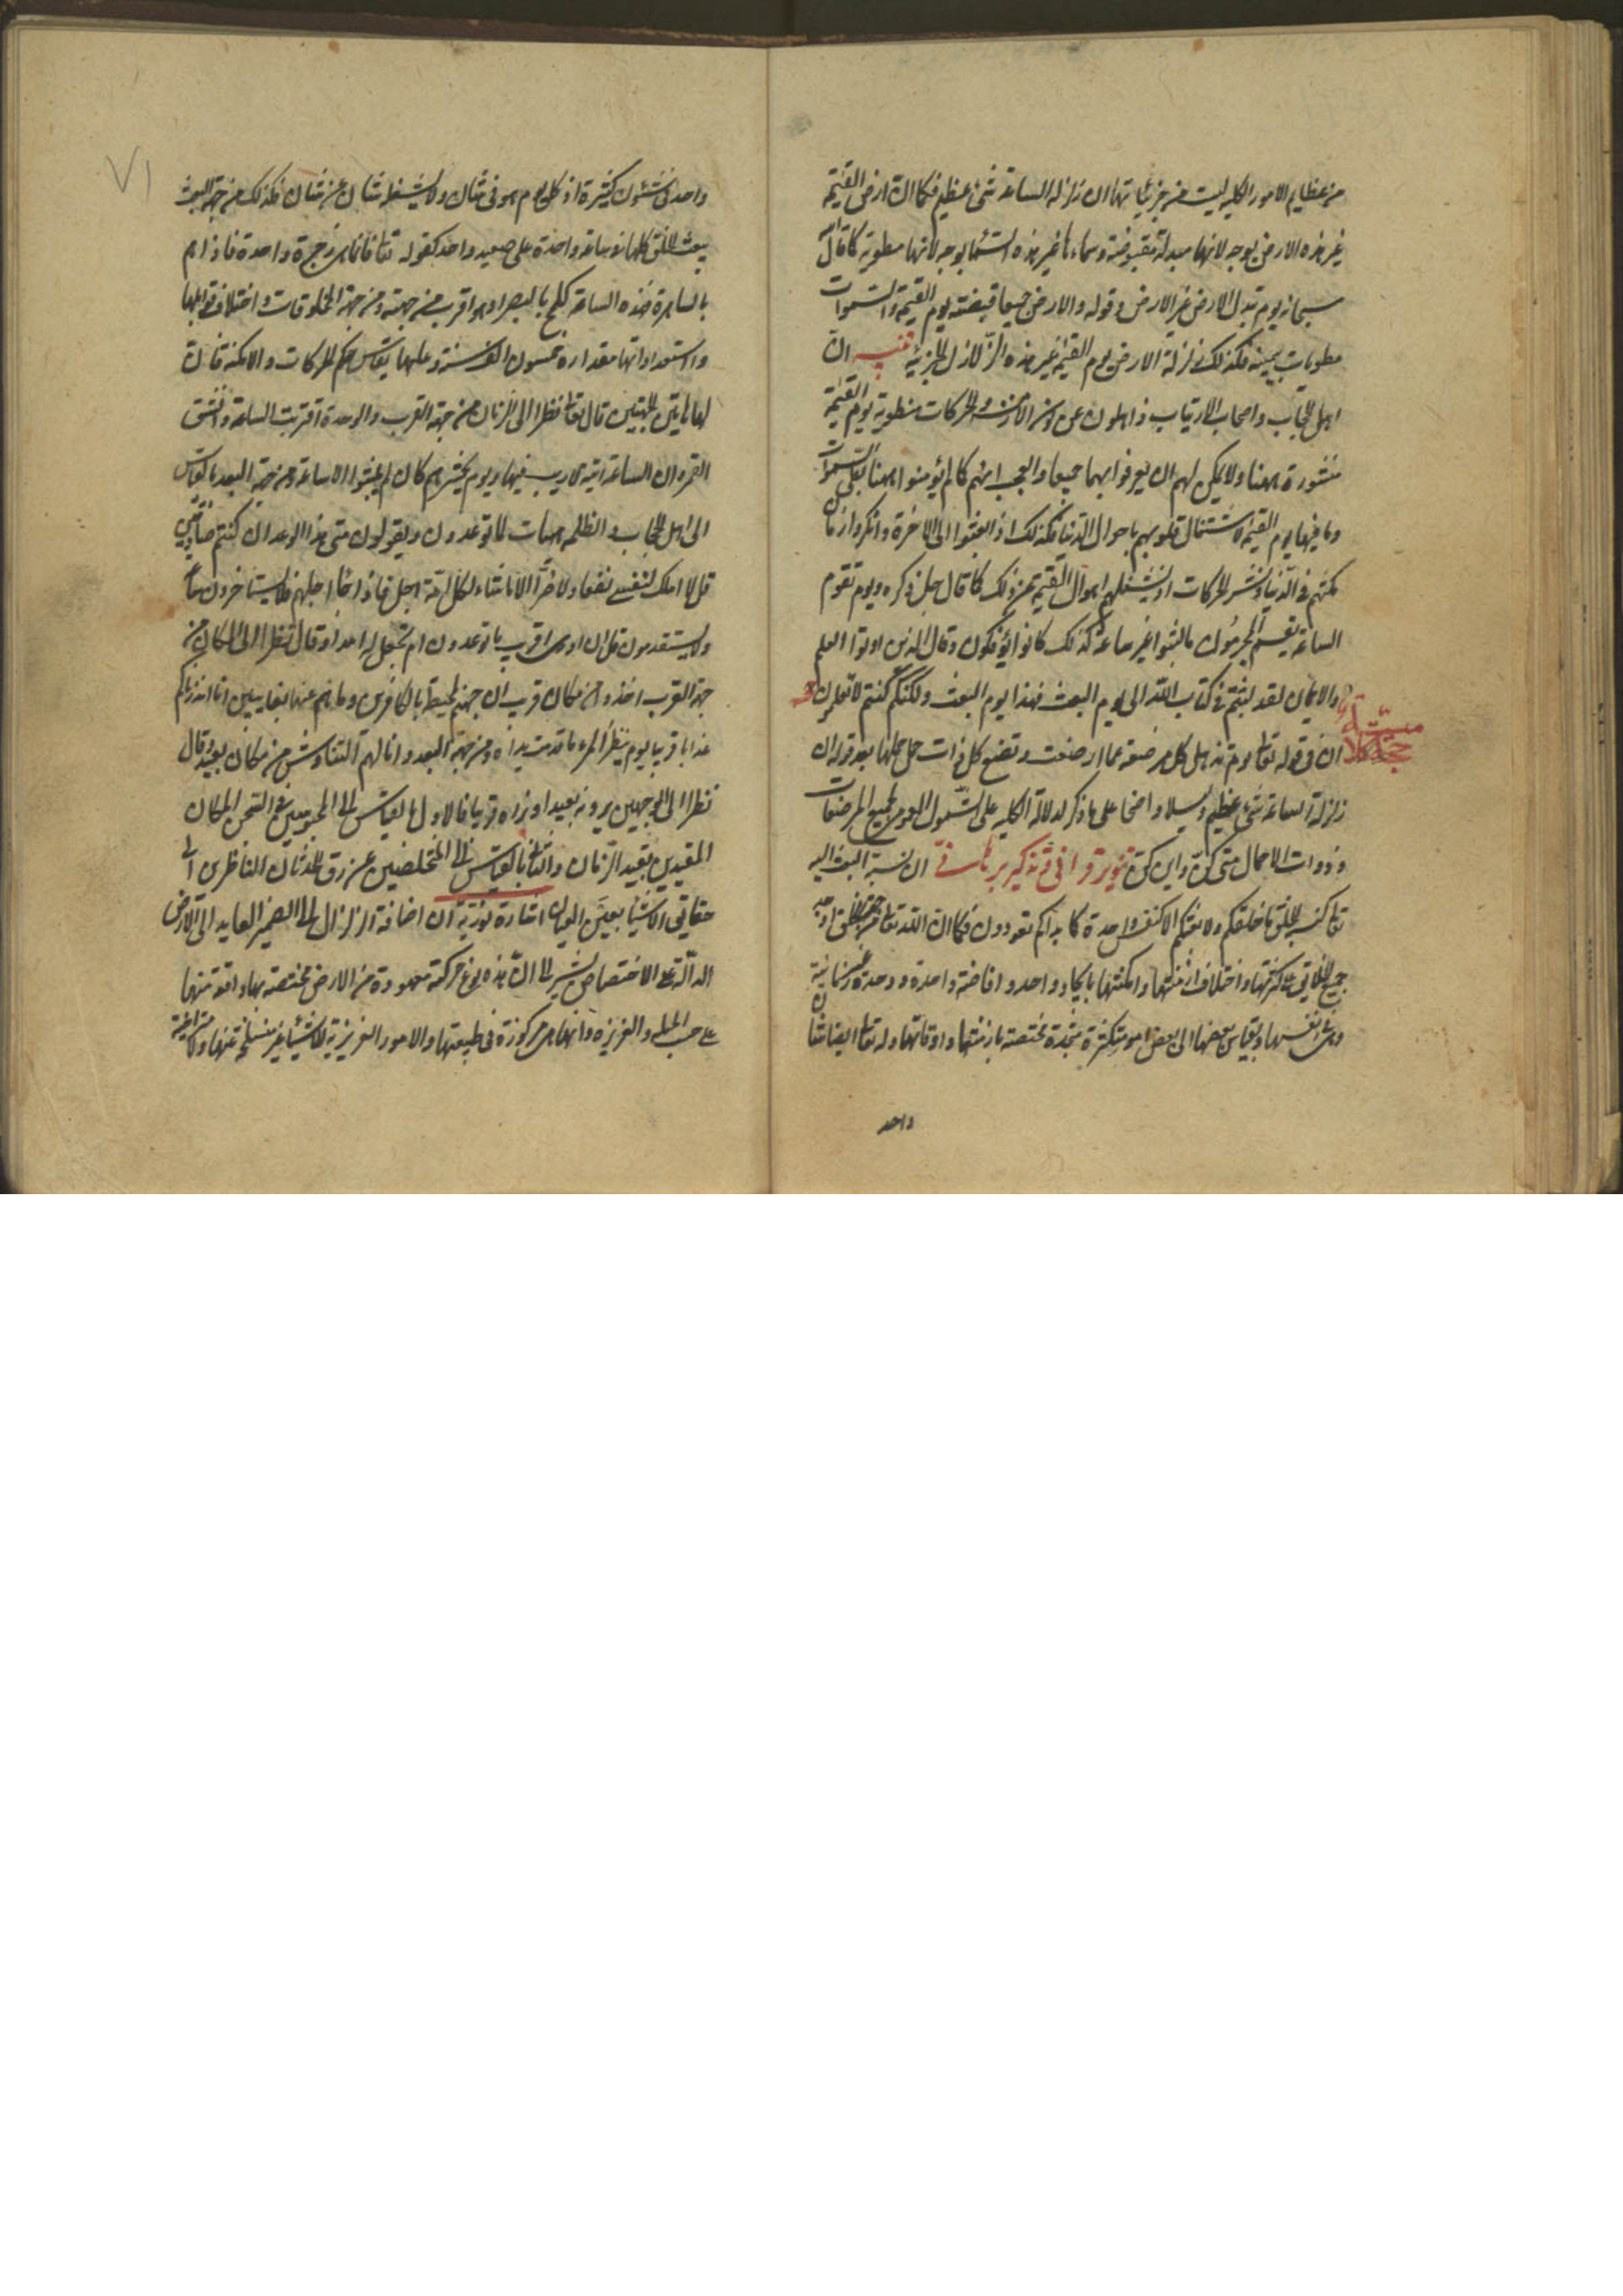 من عظايم الامور الكلية ليست من جزئياتها ان زلزلة الساعة شئ عظيم فكما ان ارض القيمة
غير هذه الارض بوجه لانها مبدلة مقبوضة وسماءها غير هذه السما بوجه لانها مطوية كما قال الله
سبحانه يوم تبدل الارض غير الارض وقوله والارض جميعا قبضته يوم القيمة والسموات
مطويات بيمينه فكذلك زلزلة الارض يوم القيمة غير هذه الزلازل الجزئية تنبيه ان
اهل الحجاب واصحاب الارتياب ذاهلون عن الازمنة والحركات منطوية يوم القيمة
منشورة ههنا ولا يمكن لهم ان يعرفوا بهما جميعا والعجب انهم كما لم يؤمنوا ههنا بطى السموات
وما فيها يوم القيمة لاشتغال قلوبهم باحوال الدنيا فكذلك اذا بعثوا الى الاخرة وانكروا زمان
مكثهم فى الدنيا ونشر الحركات اذ يشغلهم اهوال القيمة عن ذلك كما قال جل ذكره ويوم تقوم
الساعة يقسم المجرمون ما لبثوا غير ساعة كذلك كانوا يؤفكون وقال الذين اوتوا العلم
والايمان لقد لبثتم فى كتاب الله الى يوم البعث فهذا يوم البعث ولكنكم كنتم لا تعلمون
ان فى قوله تعا يوم تذهل كل مرضعة عما ارضعت وتضع كل ذات حمل حملها بعد قوله ان
زلزلة الساعة شئ عظيم دليلا واضحا على ما ذكر لدلالة الكلية على الشمول والعموم لجميع المرضعات
وذوات الاحمال متى كن واين كن تنوير قرآنى فى تذكير برهانى ان نسبة البعث اليه
تعا كنسبة الخلق ما خلقكم ولا بعثكم الا كنفس واحدة كما بداكم تعودون فكما ان الله تعا من جهة الخلق اوجد
جميع الخلايق على كثرتها واختلاف ازمنتها وامكنتها بايجاد واحد وافاضة واحدة ووحدة غير زمانية
وهى انفسها وبقياس بعضها الى بعض امور متكثرة متجددة مختصة بازمنتها واوقاتها وله تعا ايضا شان
واحد
واحد فى شئون كثيرة اذ كل يوم هو فى شان ولا يشغله شان عن شان فكذلك من جهة البعث
يبعث الخلق كلها فى ساعة واحدة على صعيد واحد كقوله تعا فانما هى زجرة واحدة فاذا هم
بالساهرة فهذه الساعة كلمح بالبصر او هو اقرب من جهته ومن جهة المخلوقات واختلاف قوابلها
واستعداداتها مقداره خمسون الف سنة وعليها يقاس حكم الحركات والامكنة فان
لها هاتين الجهتين قال تعا نظرا الى الزمان من جهة القرب والوحدة اقتربت الساعة وانشق
القمر وان الساعة اتية لا ريب فيها ويوم يحشرهم كان لم يلبثوا الا ساعة ومن جهة البعد بالقياس
الى اهل الحجاب والظلمة هيهات لما توعدون ويقولون متى هذا الوعد ان كنتم صادقين
قل لا املك لنفسى نفعا ولا ضرا الا ما شاء لكل امة اجل فاذا جاء اجلهم فلا يستاخرون ساعة
ولا يستقدمون قل ان ادرى اقريب ما توعدون ام يجعل له امدا وقال نظرا الى المكان من
جهة القرب اخذوا من مكان قريب ان جهنم لمحيطة بالكافرين وما هم عنها بغايبين انا انذرناكم
عذابا قريبا يوم ينظر المرء ما قدمت يداه ومن جهة البعد وانا لهم التناوش من مكان بعيد وقال
نظرا الى الوجهين يرونه بعيدا ونراه قريبا فالاول بالقياس الى المحبوسين فى سجن المكان
المقيدين بقيد الزمان والثانى بالقياس الى المتخلصين عن رق الحدثان الناظرين الى
حقايق الاشيا بعين العيان اشارة نورية ان اضافة الزلزال الى الضمير العايد الى الارض
الدالة على الاختصاص يشير الى ان هذه نوع حركة معهودة من الارض مختصة بها واقعة منها
على حسب الجبلة والغريزة وانها هى مركوزة فى طبيعتها والامور الغريزية للاشيا غير منسلخة عنها ولا متراخية